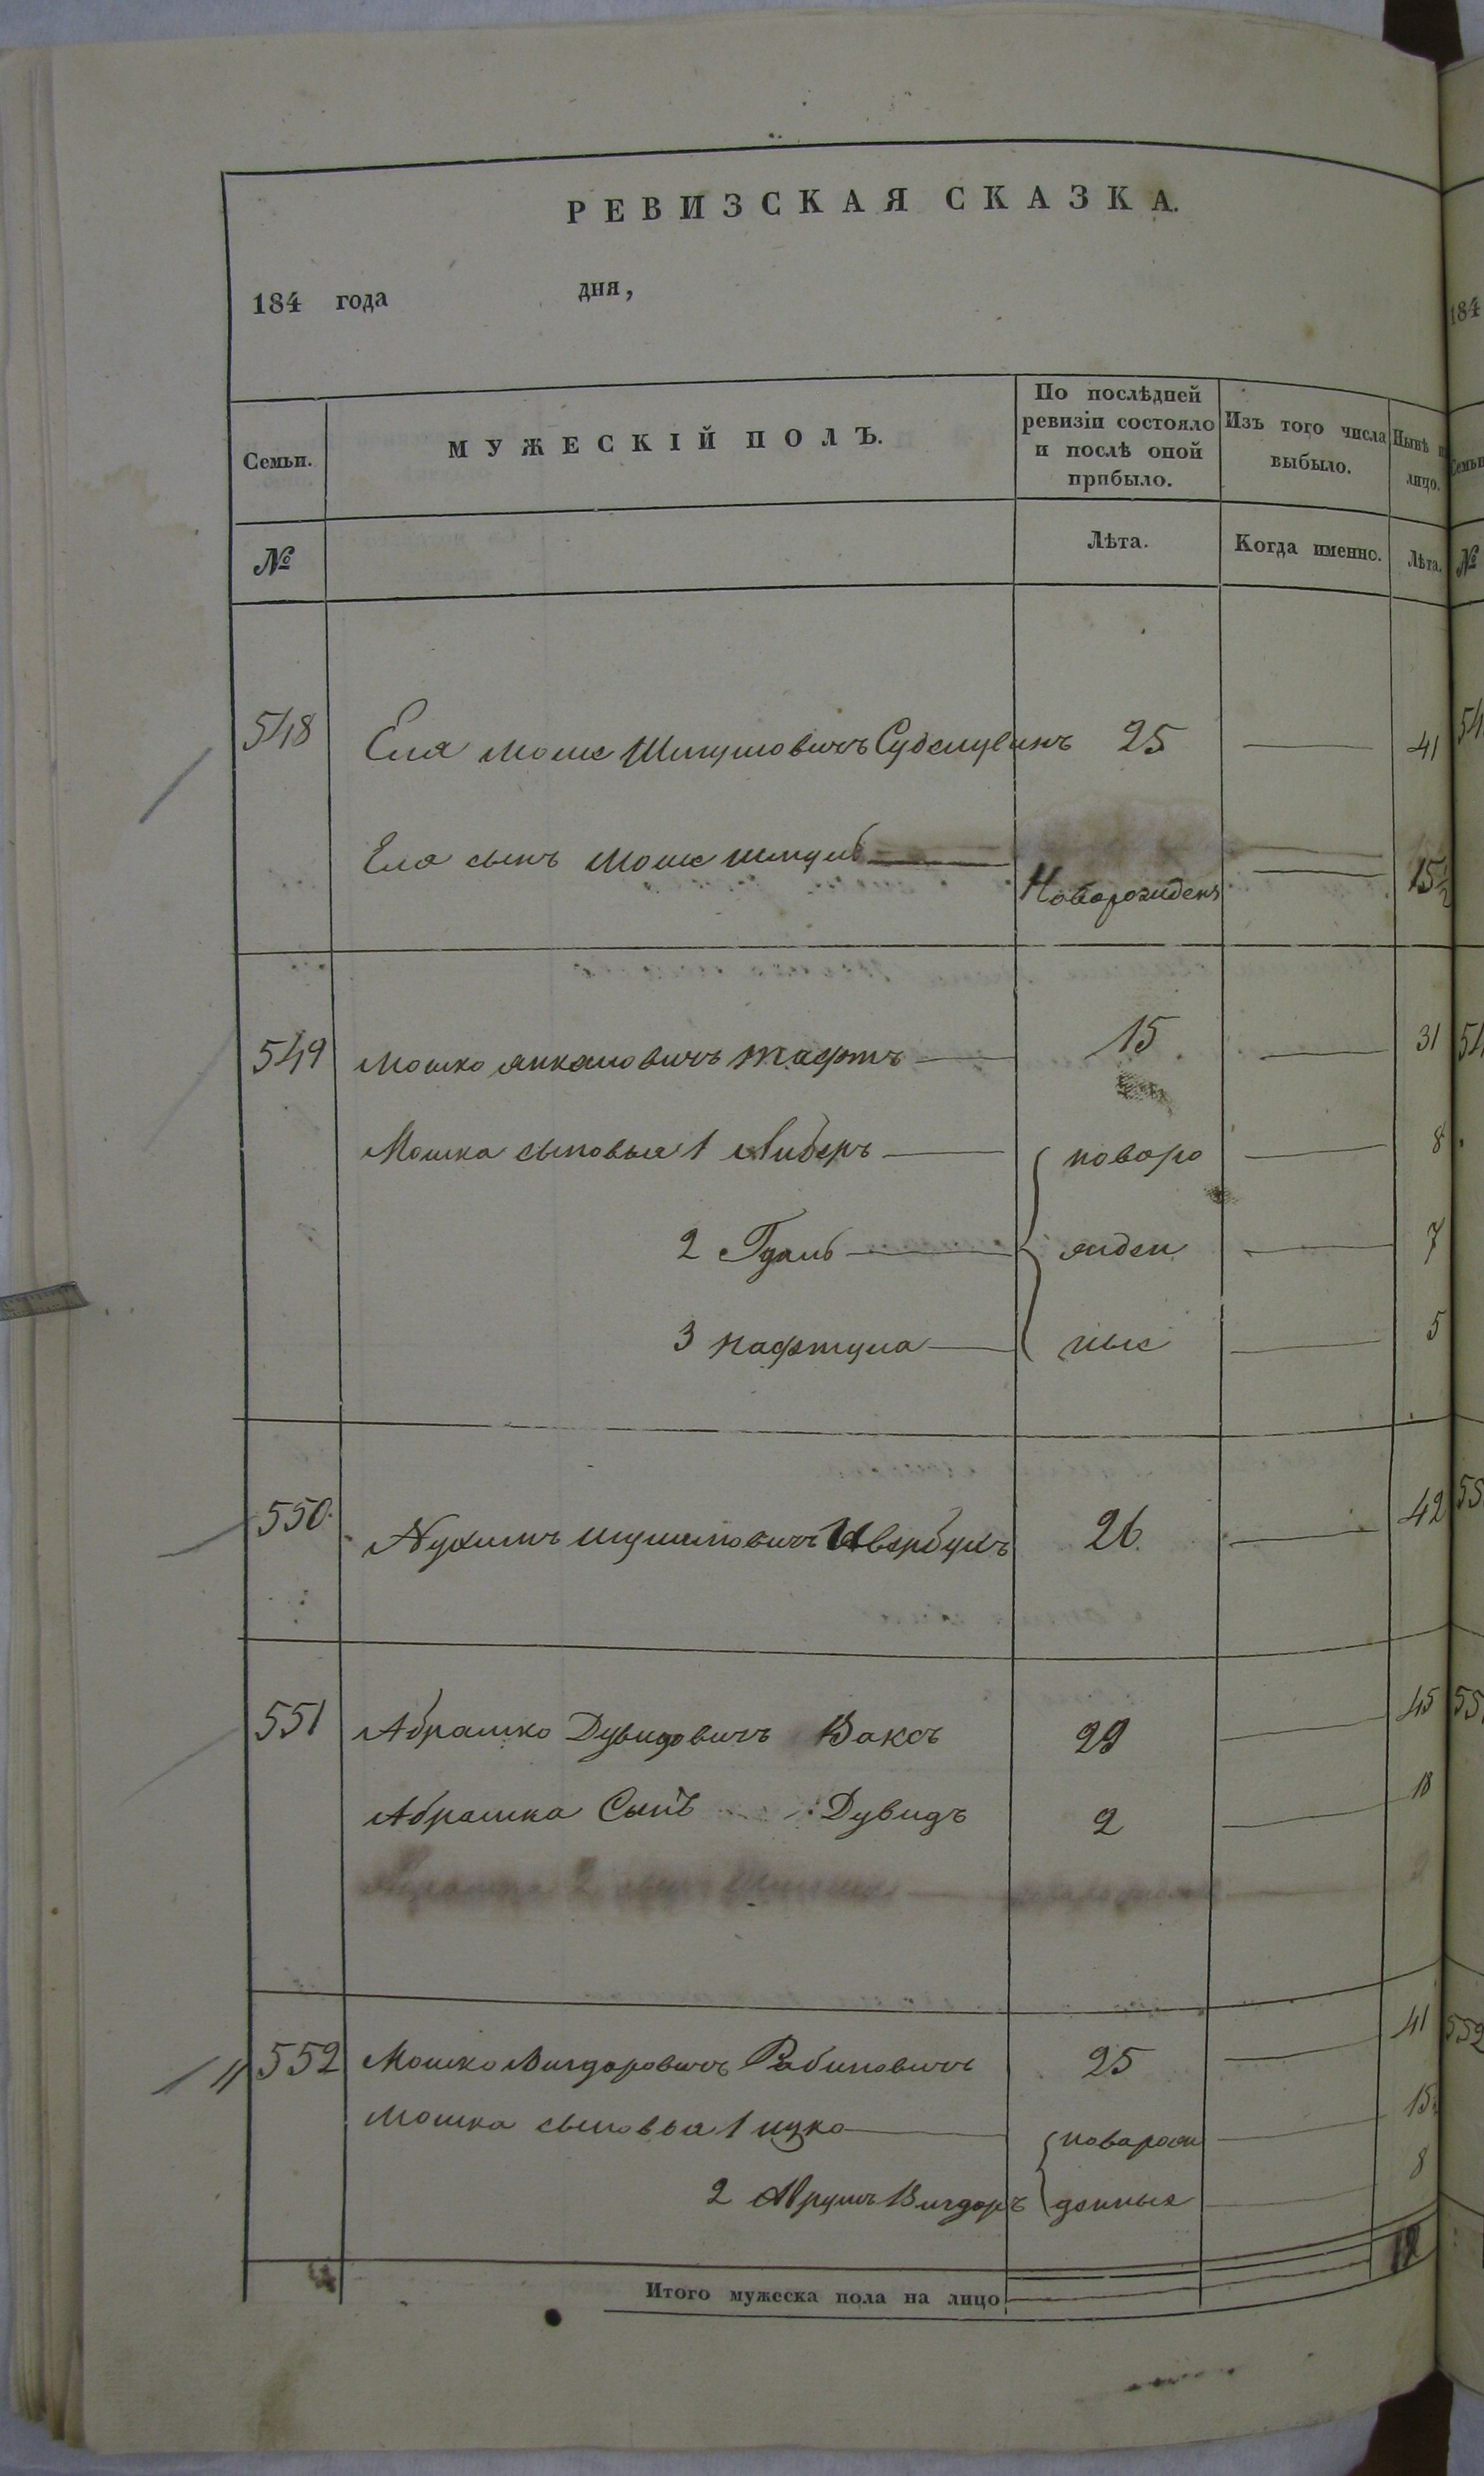 РЕВИЗСКАЯ СКАЗКА.
184 года дня,
Семьи. МУЖЕСКІЙ ПОЛЪ. По послѣдней ревизіи состояло и послѣ оной прибыло. Изъ того числа выбыло. Нынѣ
лицо.
№ Лѣта. Когда именно. Лѣта.
548 Еля Моше Шмулювичъ 25 41
Еля сынъ Моше Шмуль Новорожденъ 15½
549 Мошко Янкелювичъ 15 31
Мошка сыновья 1 Либеръ новоро 8
2 Гдаль жден 7
3 Нафтула ные 5
550. Нухимъ Авербухъ 26. 42
551 Абрамко Дувидовичъ Ваксъ 29 45
Абрамка Сынъ Дувидъ 2 18
552 Мошко Вигдоровичъ Рабиновичъ 25 41
Мошка сыновья 1 Ицко новарож 15½
2 Аврумъ Вигдоръ данные 8
Итого мужеска пола на лицо
184
Семьи
№
552